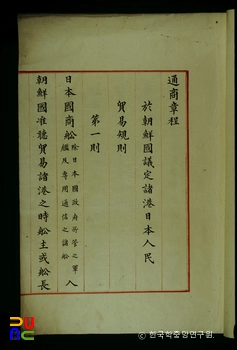 通商章程
於朝鮮國議定諸港日本人民
貿易規則
第一則
日本國商船除日本國政府所管之軍艦及專用通信之諸船入
朝鮮國准聽貿易諸港之時船主或船長
ⓒ한국학중앙연구원